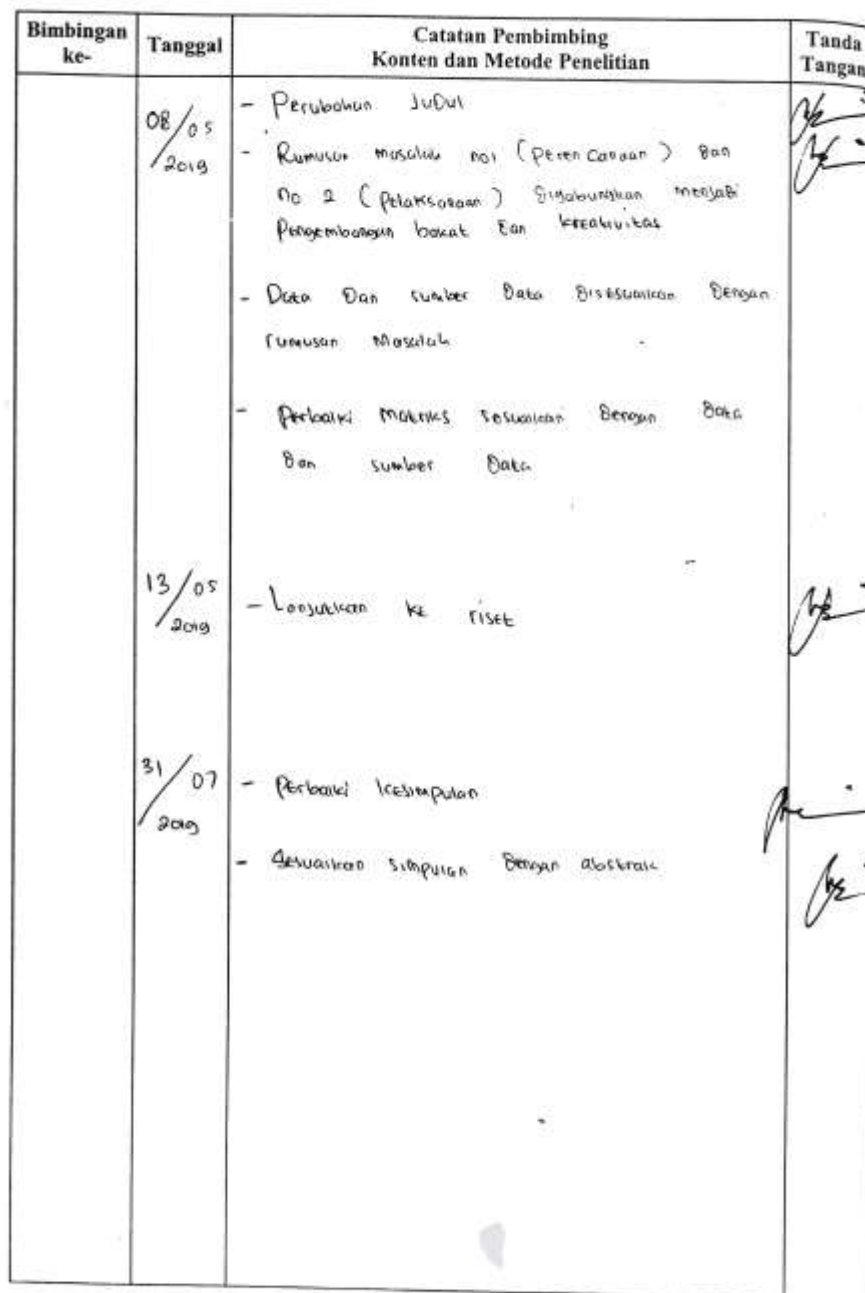 Bimbingan ke-
Tanggal
Catatan Pembimbing
Konten dan Metode Penelitian
Tanda Tangan
08/05/2019
- Perubahan Judul
- Rumusan masalah no1 (Perencanaan) dan
no 2 (Pelaksanaan) digabungkan menjadi
Pengembangan bakat dan kreativitas
- Data Dan sumber Data Disesuaikan Dengan
rumusan Masalah
- Perbaiki matriks sesuaikan Dengan Data
Dan sumber Data
13/05/2019
- Lanjutkan ke riset
31/07/2019
- Perbaiki kesimpulan
- Sesuaikan simpulan Dengan abstrak